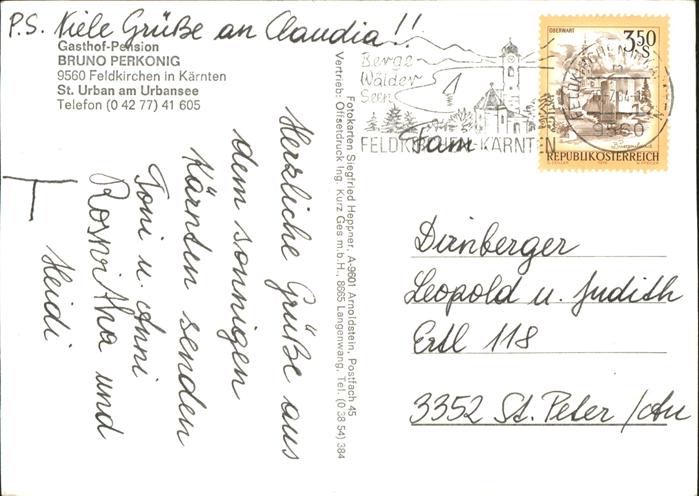 P.S. Viele Grüße an Claudia!!
Gasthof-Pension
BRUNO PERKONIG
9560 Feldkirchen in Kärnten
St. Urban am Urbansee
Telefon (0 42 77) 41 605
Herzliche Grüße aus
dem sonnigen
Kärnten senden
Toni u. Anni
Roswitha und
Heidi
Fotokarten Siegfried Heppner, A-9601 Arnoldstein, Postfach 45
Vertrieb: Offsetdruck Ing. Kurz Ges.m.b.H., 8665 Langenwang, Tel. (0 38 54) 384
Berge
Wälder
Seen
OBERWART
3,50
S
9560
REPUBLIK ÖSTERREICH
Fam
Dirnberger
Leopold u. Judith
Ertl 118
3352 St. Peter /Au